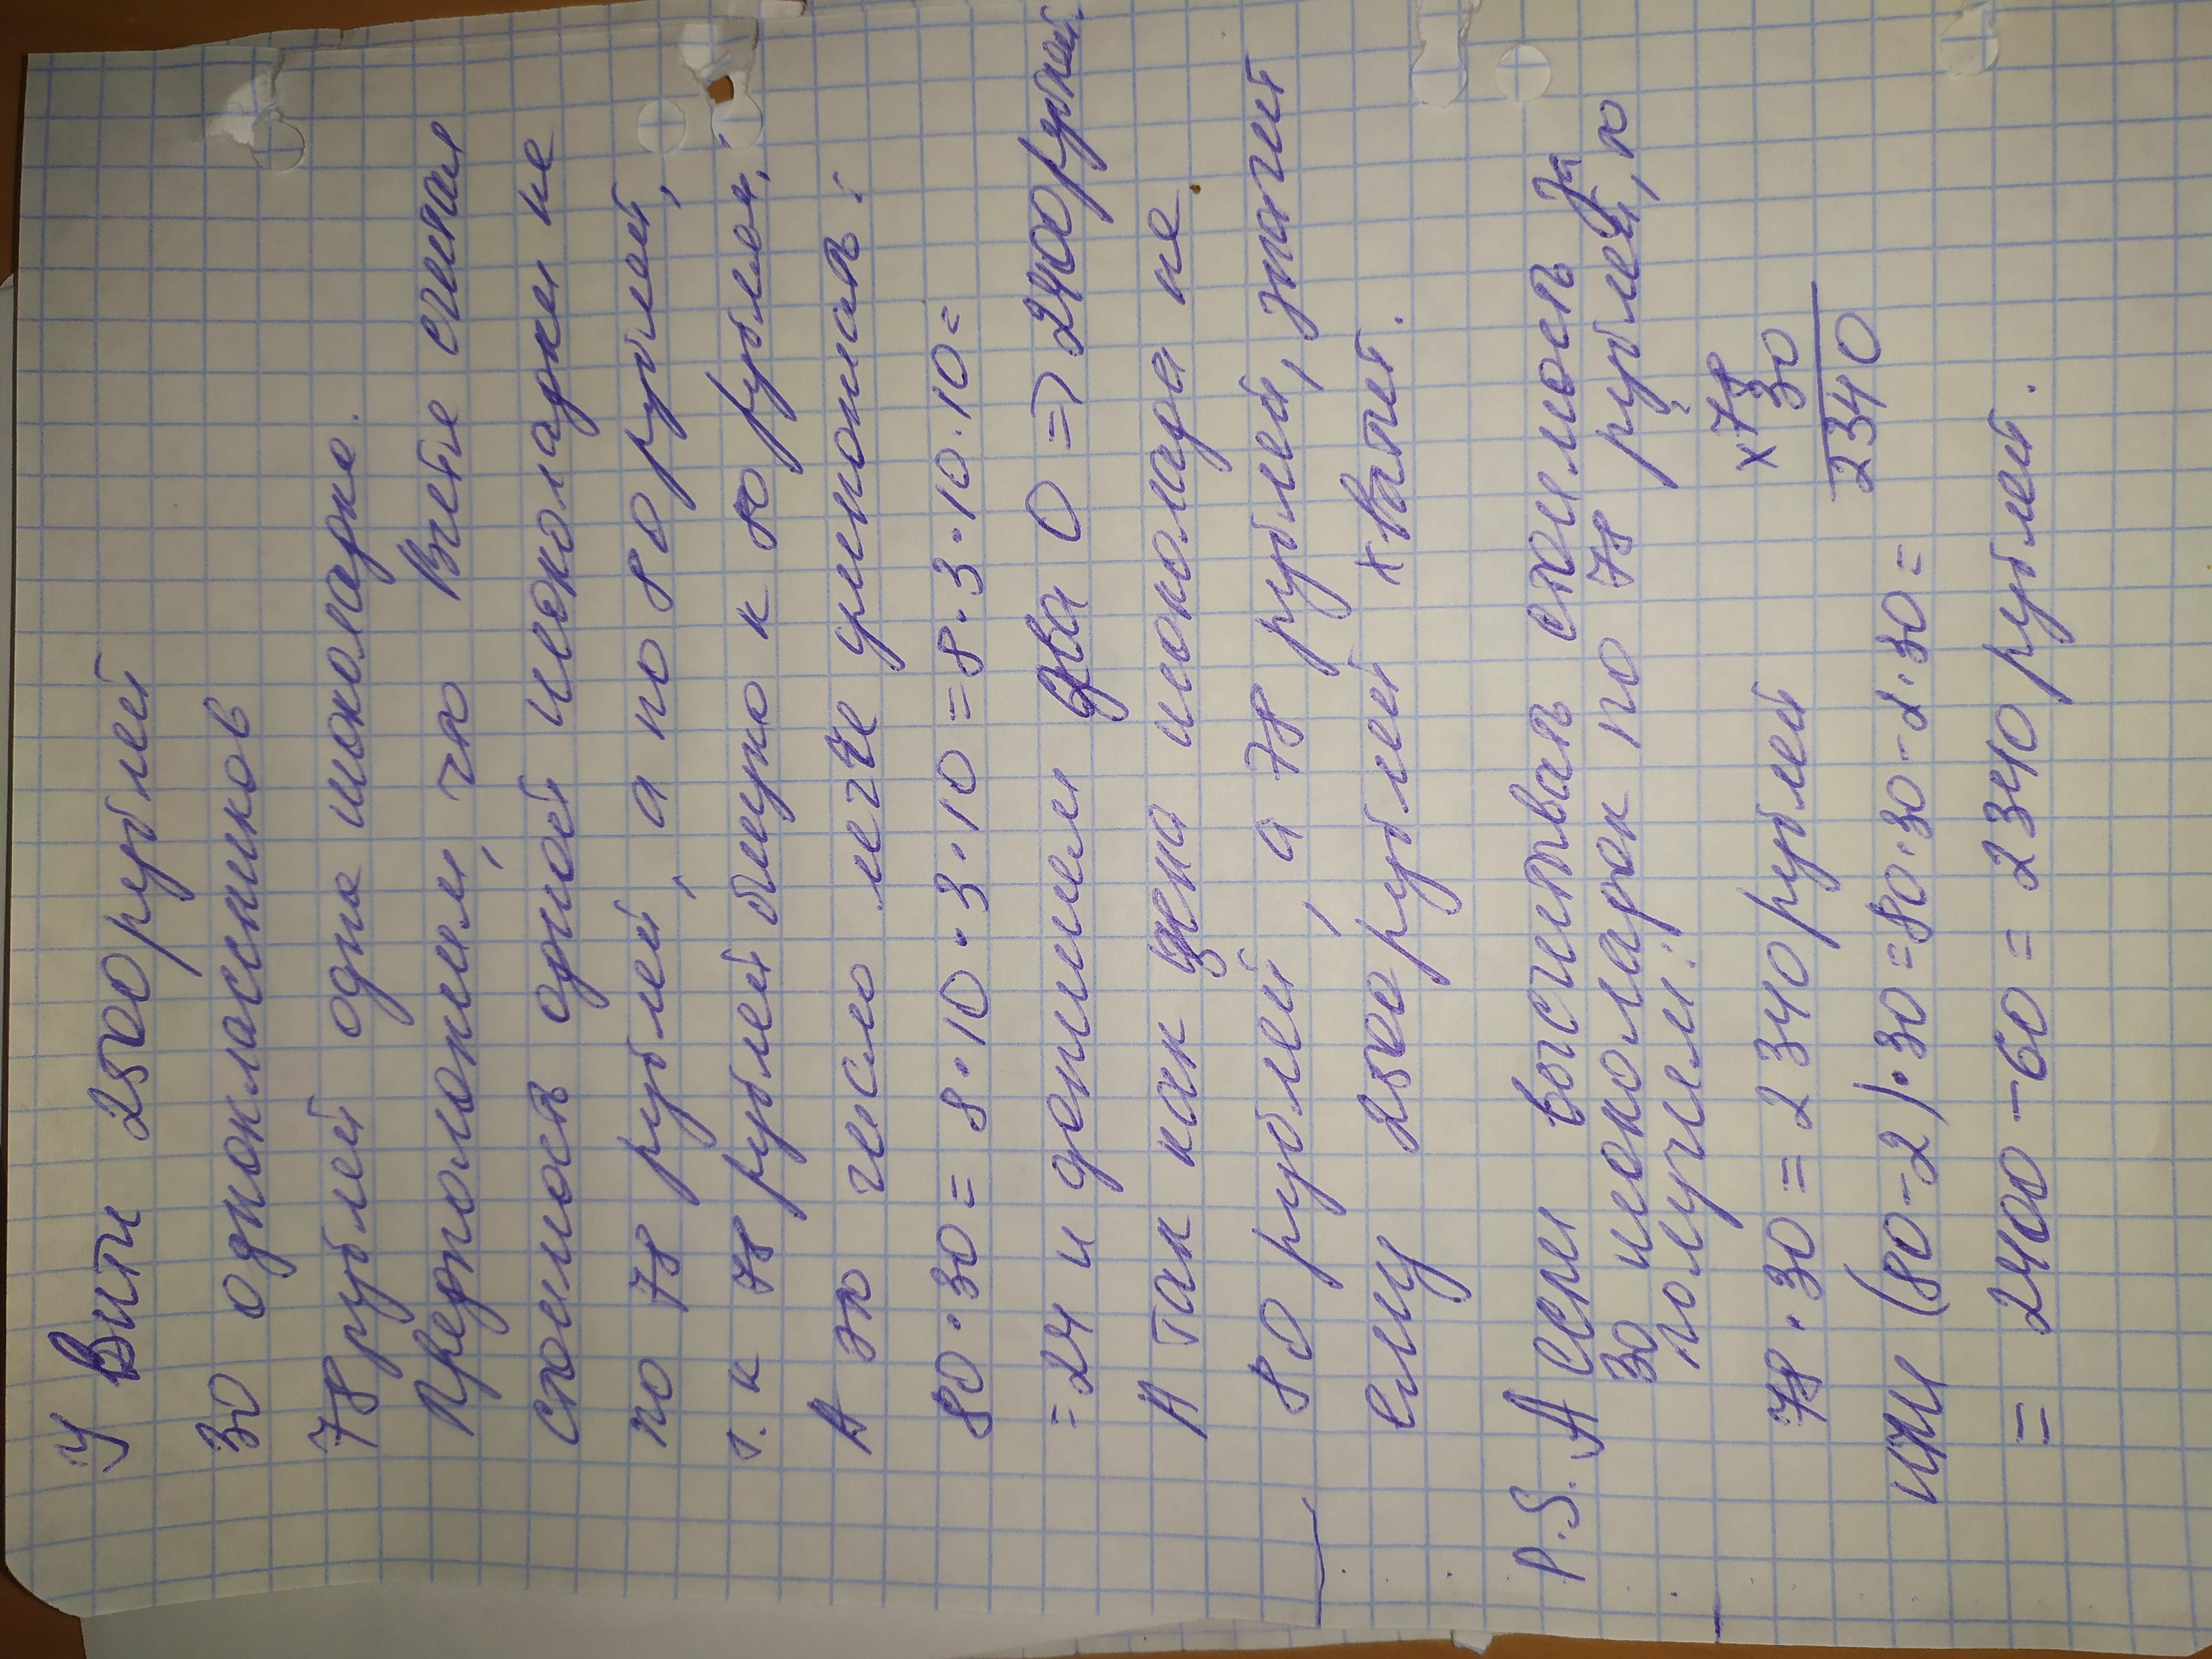 У Вити 2500 рублей
30 одноклассников
78 рублей одна шоколадке.
Предположим, что Витя считал
стоимость одной шоколадки не
по 78 рублей, а по 80 рублей,
т.к 78 рублей ближе к 80 рублям,
А это число легче умножать:
80·30= 8·10·3·10=8·3·10·10=
=24 и допишем два 0 => 2400 рублей.
А так как цена шоколада не
80 рублей, а 78 рублей, значит
ему 2500 рублей хватит.
P.S. А если высчитывать стоимость за
30 шоколадок по 78 рублей, то
получем:
78·30=2340 рублей
x78
30
2340
или (80-2)·30=80·30-2·30=
=2400-60=2340 рублей.